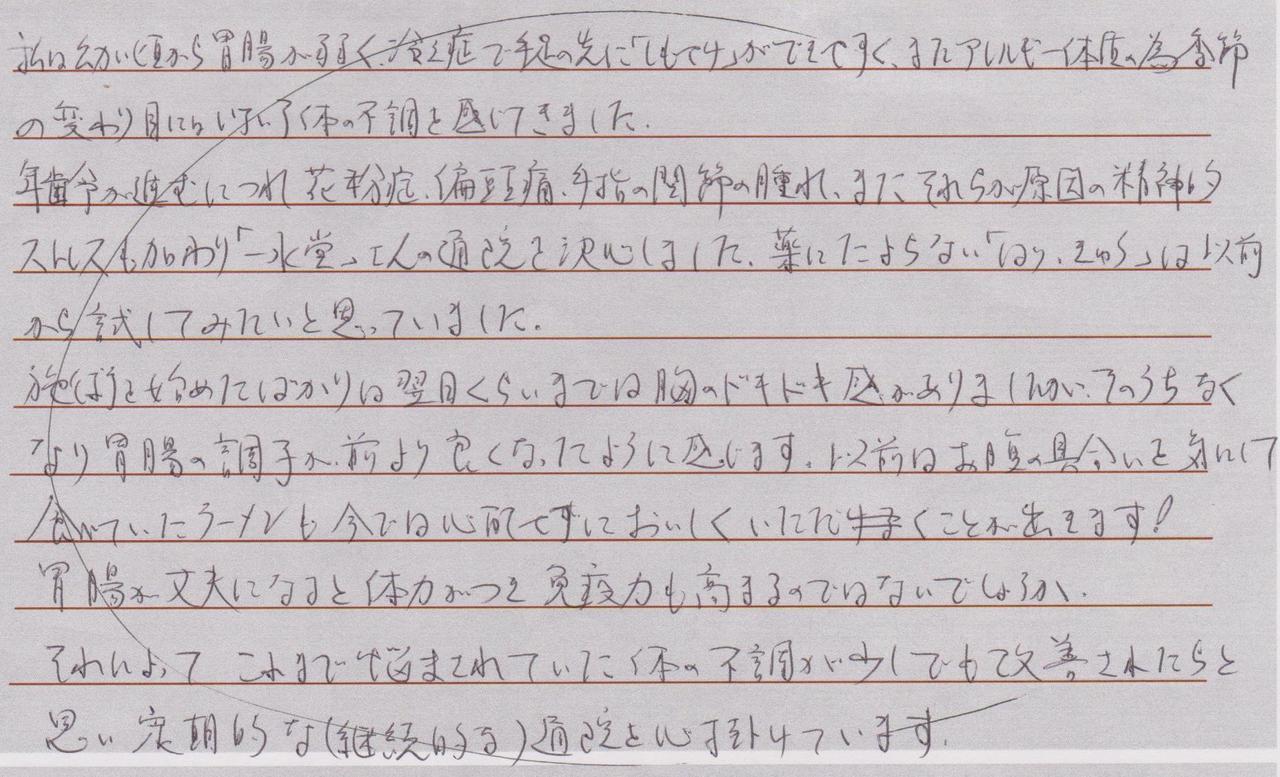 私は幼い頃から胃腸が弱く、冷え症で手足の先に「しもやけ」ができやすく、またアレルギー体質の為季節
の変わり目にはいろいろ体の不調を感じてきました。
年齢が進むにつれ花粉症、偏頭痛、手指の関節の腫れ、またそれらが原因の精神的
ストレスも加わり「一水堂」さんの通院を決心しました。薬にたよらない「はり、きゅう」は以前
から試してみたいと思っていました。
施術を始めたばかりは翌日くらいまでは胸のドキドキ感がありましたが、そのうちなく
なり胃腸の調子が前より良くなったように感じます。以前はお腹の具合いを気にして
食べていたラーメンも今では心配せずにおいしくいただくことが出来ます!
胃腸が丈夫になると体力がつき免疫力も高まるのではないでしょうか。
それによってこれまで悩まされていた体の不調が少しでも改善されたらと
思い定期的な(継続的な)通院を心掛けています。